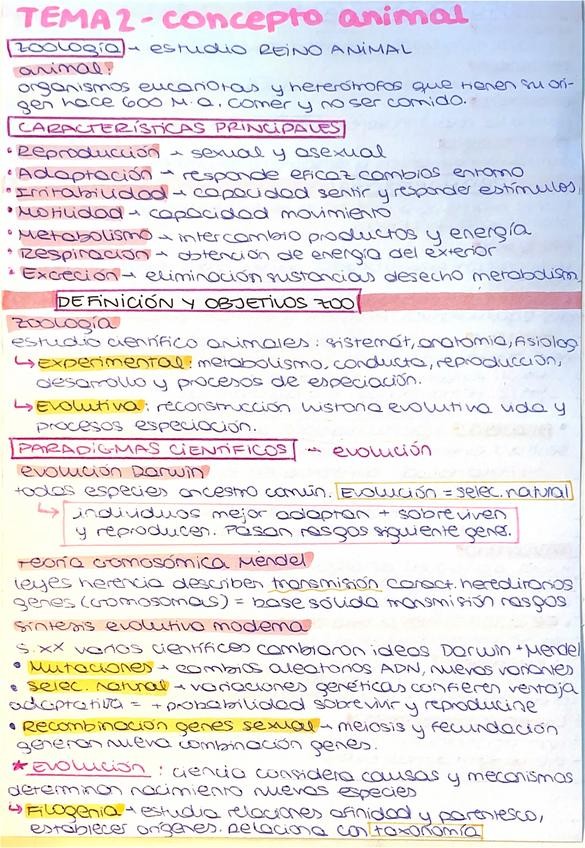 TEMA 2 - concepto animal
zoología → estudio REINO ANIMAL
animal:
organismos eucariotas y heterótrofos que tienen su ori-
gen hace 600 M.a. comer y no ser comido.
CARACTERÍSTICAS PRINCIPALES
• Reproducción → sexual y asexual
• Adaptación → responde eficaz cambios entorno
• Irritabilidad → capacidad sentir y responder estímulos.
• Motilidad → capacidad movimiento
• Metabolismo → intercambio productos y energía
• Respiración → obtención de energía del exterior
• Excreción → eliminación sustancias desecho metabolism
DEFINICIÓN Y OBJETIVOS ZOO
zoología
estudio científico animales: sistemát, anatomía, fisiolog
↳ experimental: metabolismo, conducta, reproducción,
desarrollo y procesos de especiación.
↳ Evolutiva: reconstrucción historia evolutiva vida y
procesos especiación.
PARADIGMAS CIENTÍFICOS → evolución
evolución Darwin
todas especies ancestro común. Evolución = selec. natural
↳ individuos mejor adaptan + sobreviven
y reproducen. Pasan rasgos siguiente gene.
teoría cromosómica Mendel
leyes herencia describen transmisión caract. hereditarios
genes (cromosomas) = base sólida transmisión rasgos
síntesis evolutiva moderna
S. XX varios científicos cambiaron ideas Darwin + Mendel
• Mutaciones → cambios aleatorios ADN, nuevas variantes
• selec. natural → variaciones genéticas confieren ventaja
adaptativa = + probabilidad sobrevivir y reproducirse
• Recombinación genes sexual → meiosis y fecundación
generan nueva combinación genes.
* EVOLUCIÓN: ciencia considera causas y mecanismos
determinan nacimiento nuevas especies
↳ Filogenia → estudia relaciones afinidad y parentesco,
establecer orígenes. Relaciona con taxonomía